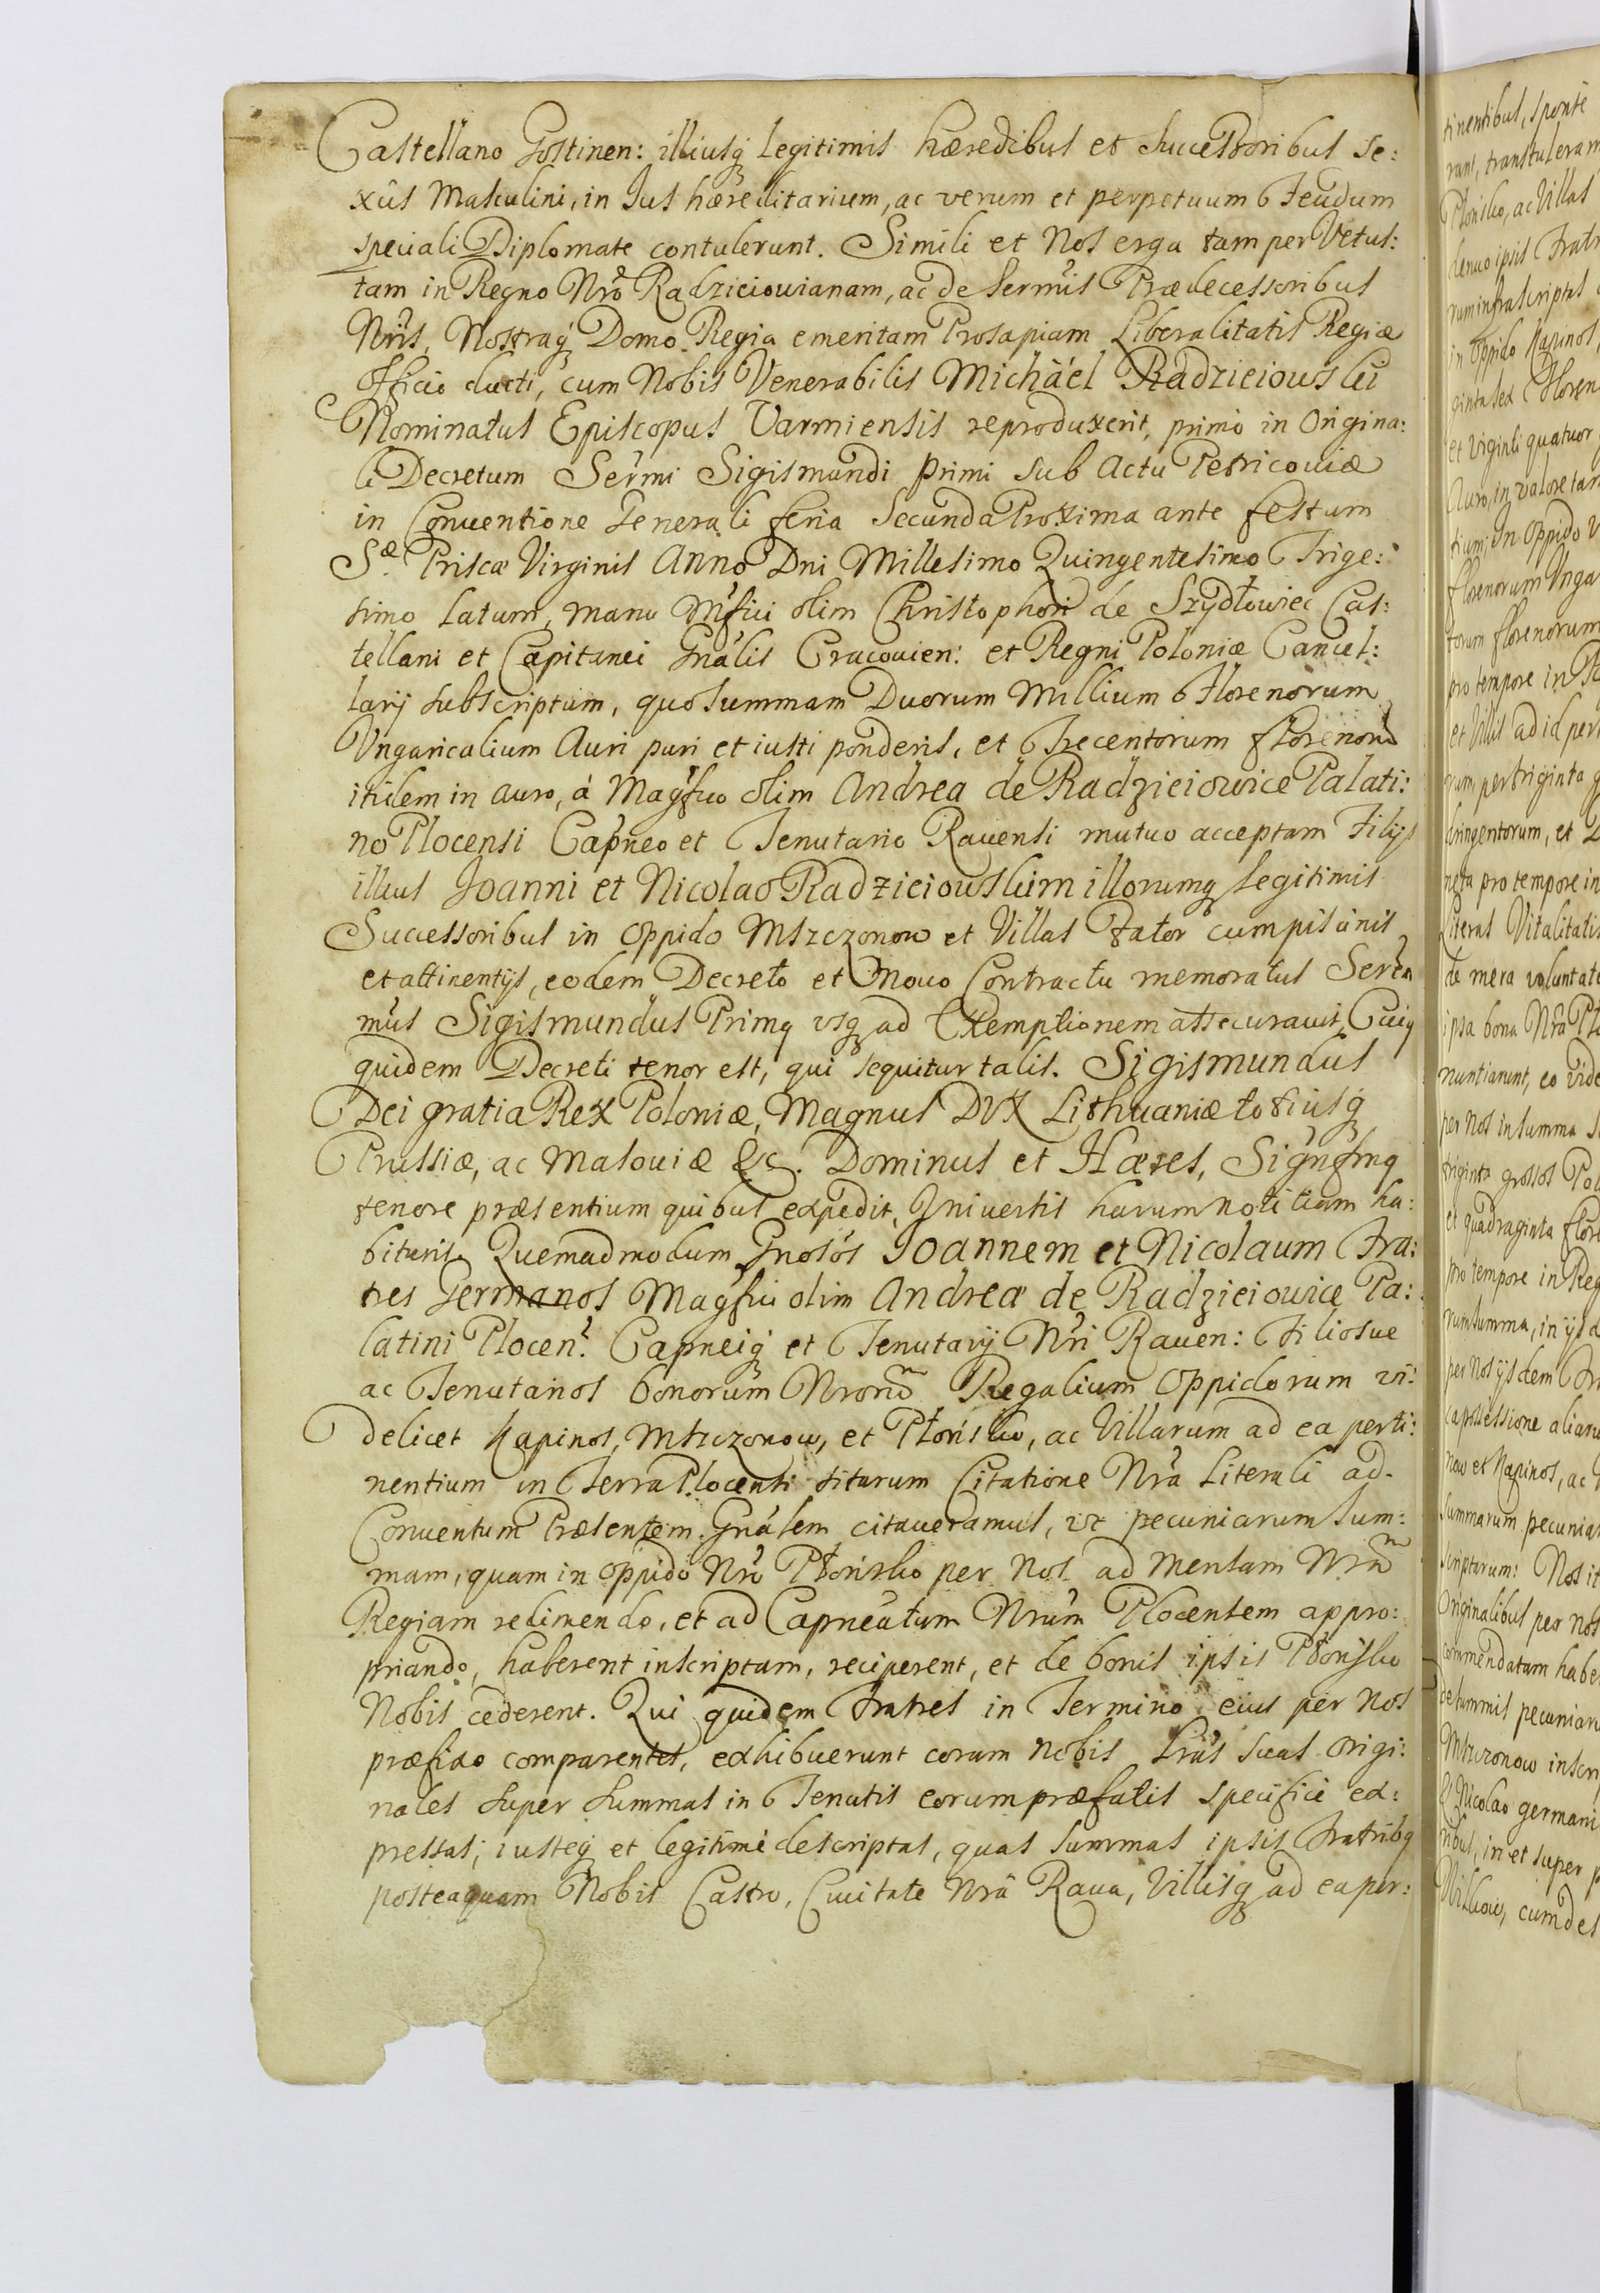 Castellano Gostinen: illiusq; Legitimis hæredibus et Successoribus Se:
xûs Masculini, in Jus hæreditarium, ac verum et perpetuum Feudum
speciali Diplomate contulerunt. Simili et Nos erga tam per Vetus:
tam in Regno Nrõ Radzieiouianam, ac de Sermis Prædecessoribus
Nris, Nostraq; Domo Regia emeritam Prosapiam Liberalitatis Regiæ
Officio ducti, cum Nobis Venerabilis Michaël Radzieiouski
Nominatus Episcopus Varmiensis reproduxerit, primò in Origina:
li Decretum Sermi Sigismundi Primi sub Actu Petricouiæ
in Conuentione Generali feria Secunda Proxima ante festum
Sæ. Priscæ Virginis Anno Dni Millesimo Quingentesimo Trige:
simo latum, manu Mfici olim Christophori de Szydłowiec Cas:
tellani et Capitanei Gnalis Cracouien: et Regni Poloniæ Cancel:
larij subscriptum, quo Summam Duorum Millium Florenorum
Vngaricalium Auri puri et iusti ponderis, et Trecentorum florenorũ
itidem in auro, à Magfico olim Andrea de Radzieiowice Palati:
no Plocensi Capneo et Tenutario Rauensi mutuo acceptam Filijs
illius Joanni et Nicolao Radzieiouskim illorumq; legitimis
Successoribus in Oppido Mszczonow et Villas Fator cum piscinis
et attinentijs, eodem Decreto et Nouo Contractu memoratus Seren
mus Sigismundus Primq vsq; ad Exemptionem assecurauit, Cuiq
quidem Decreti tenor est, qui sequitur talis. Sigismundus
Dei gratia Rex Poloniæ, Magnus Dux Lithuaniæ totiusq;
Prussiæ, ac Masouiæ &c. Dominus et Hæres, Signfmq
tenore præsentium quibus expedit, Vniuersis harum notitiam ha:
bituris. Quemadmodum Gnosos Joannem et Nicolaum Fra:
tres Germanos Magfici olim Andreæ de Radzieiowice Pa:
latini Plocen. Capneiq; et Tenutarij Nri Rauen: Filiosue
ac Tenutarios bonorum Nrorum Regalium Oppidorum vi:
delicet Kapinos, Mszczonow, et Płońsko, ac Villarum ad ea perti:
nentium in Terra Plocensi sitarum Citatione Nrã Literali ad
Conuentum Præsentem Gnalem citaueramus, vt pecuniarum Sum:
mam, quam in Oppido Nrõ Płońsko per Nos ad Mensam Nram
Regiam redimendo, et ad Capneatum Nrum Plocensem appro:
priando, haberent inscriptam, reciperent, et de bonis ipsis Płońsko
Nobis cederent. Qui quidem Fratres in Termino eius per Nos
præfixo comparentes, exhibuerunt coram Nobis Lras suas origi:
nales super Summas in Tenutis eorum præfatis specificè ex:
pressas, iusteq; et legitimè descriptas, quas Summas ipsis Fratribq
posteaquam Nobis Castro, Ciuitate Nrã Raua, Villisq; ad ea per:
tinentibus, sponte
rant, transtuleram
Płońsko, ac Villas
denuo ipsis Fratr
rum infrascriptas
in Oppido Kapinos,
ginta sex Floren
et Viginti quatuor
Auro, in valore tan
tium, In Oppido
florenorum Vnga
torum florenorum
pro tempore in
et Villis ad id per
rum per triginta
dringentorum, et
neta pro tempore in
Literas Vitalitatis
de mera voluntate
ipsa bona Nrã
nuntiarent, eo vide
per Nos in Summa
triginta grossos Pol
et quadraginta flore
pro tempore in Reg
rum summa, in ijsd
per Nos ijsdem Fra
ca possessione aliaru
now et Kapinos, ac
Summarum pecunia
scriptarum: Nos it
Originalibus per Nos
commendatam habe
de summis pecuniaru
Mszczonow inscri
et Nicolao germani
ribus, in et super
cum des